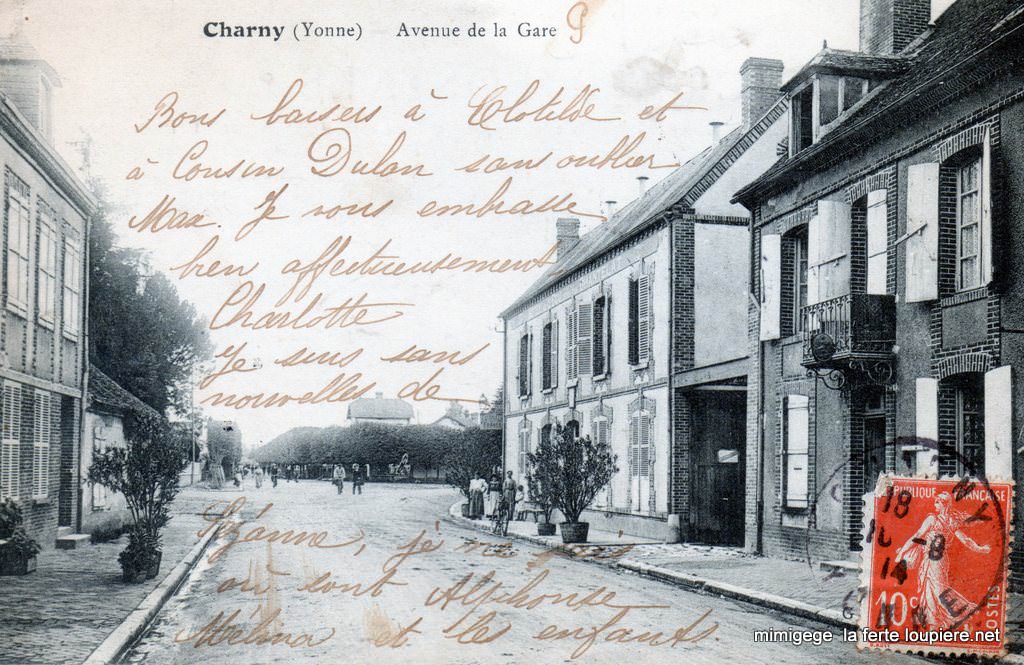 Charny (Yonne) Avenue de la Gare 9
Bons baisers à Clotilde et
à Cousin Dulan sans oublier
Max. Je vous embrasse
bien affectueusement
Charlotte
Je suis sans
nouvelles de
Suzanne, je ne sais
où sont Alphonse
Melina et les enfants.
RÉPUBLIQUE FRANÇAISE
18
8
14
10c
POSTES
mimigege la ferte loupiere.net